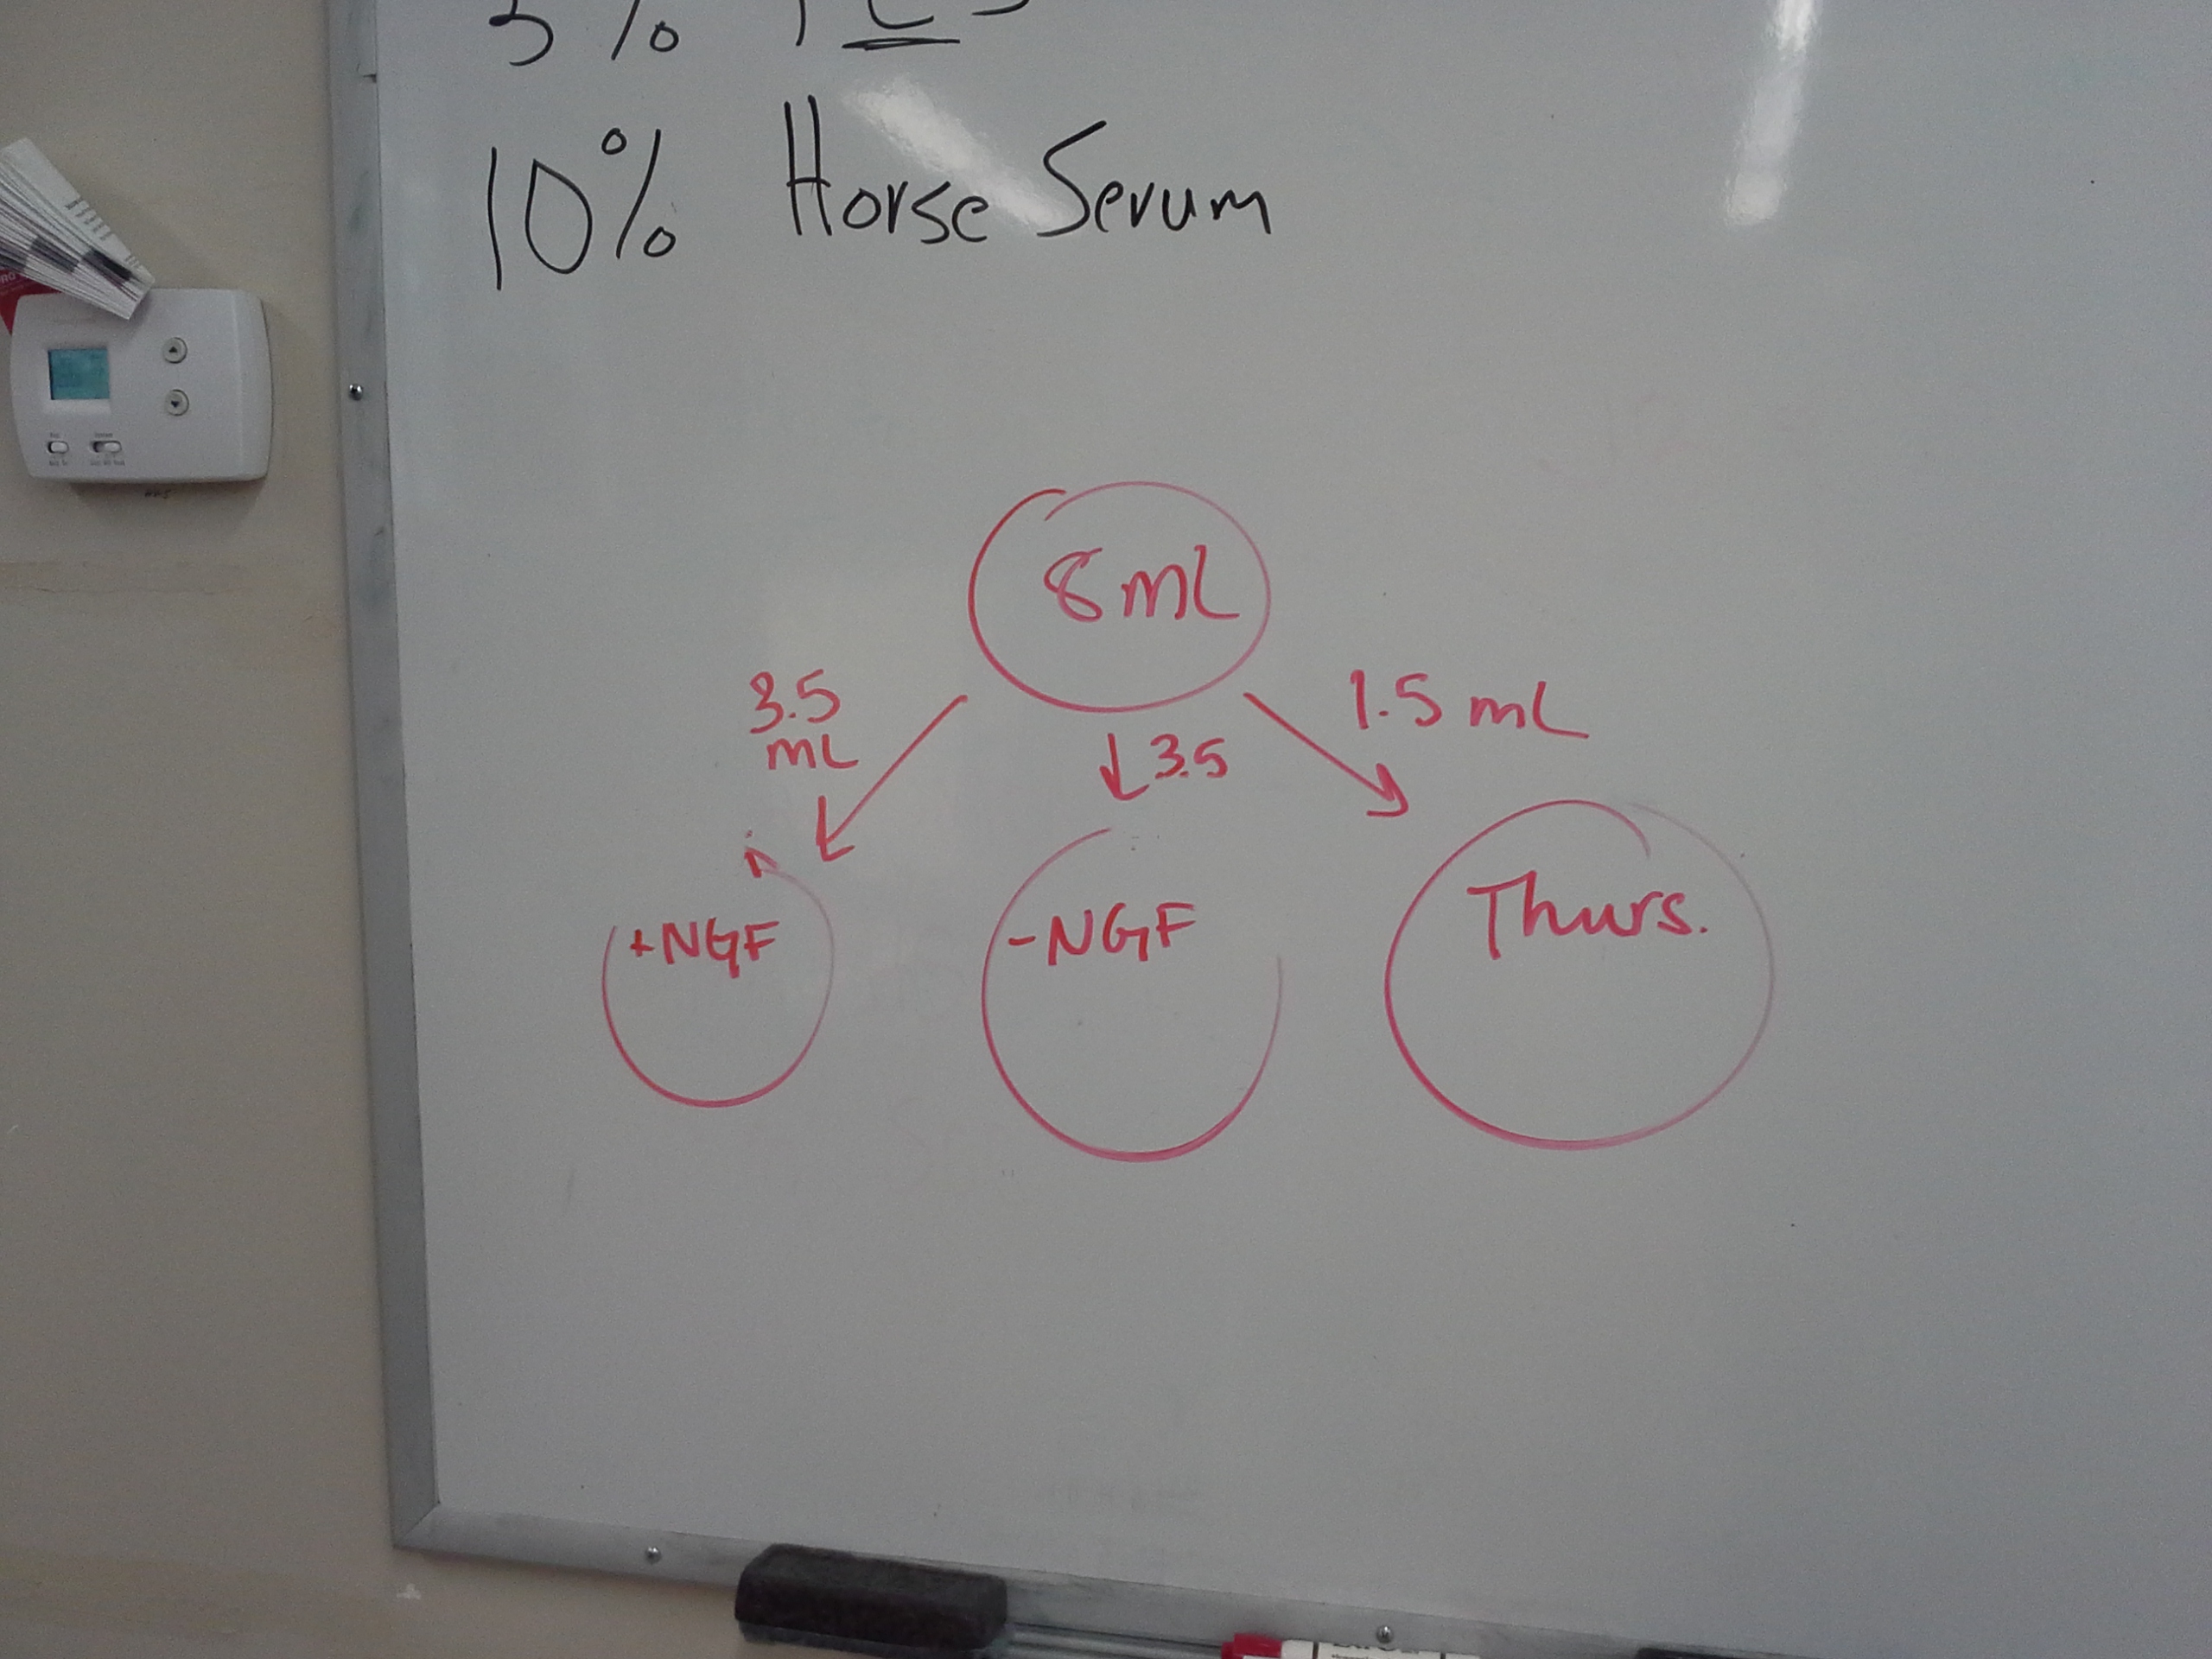 10% Horse Serum
8 mL
3.5
mL
3.5
1.5 mL
+NGF
-NGF
Thurs.